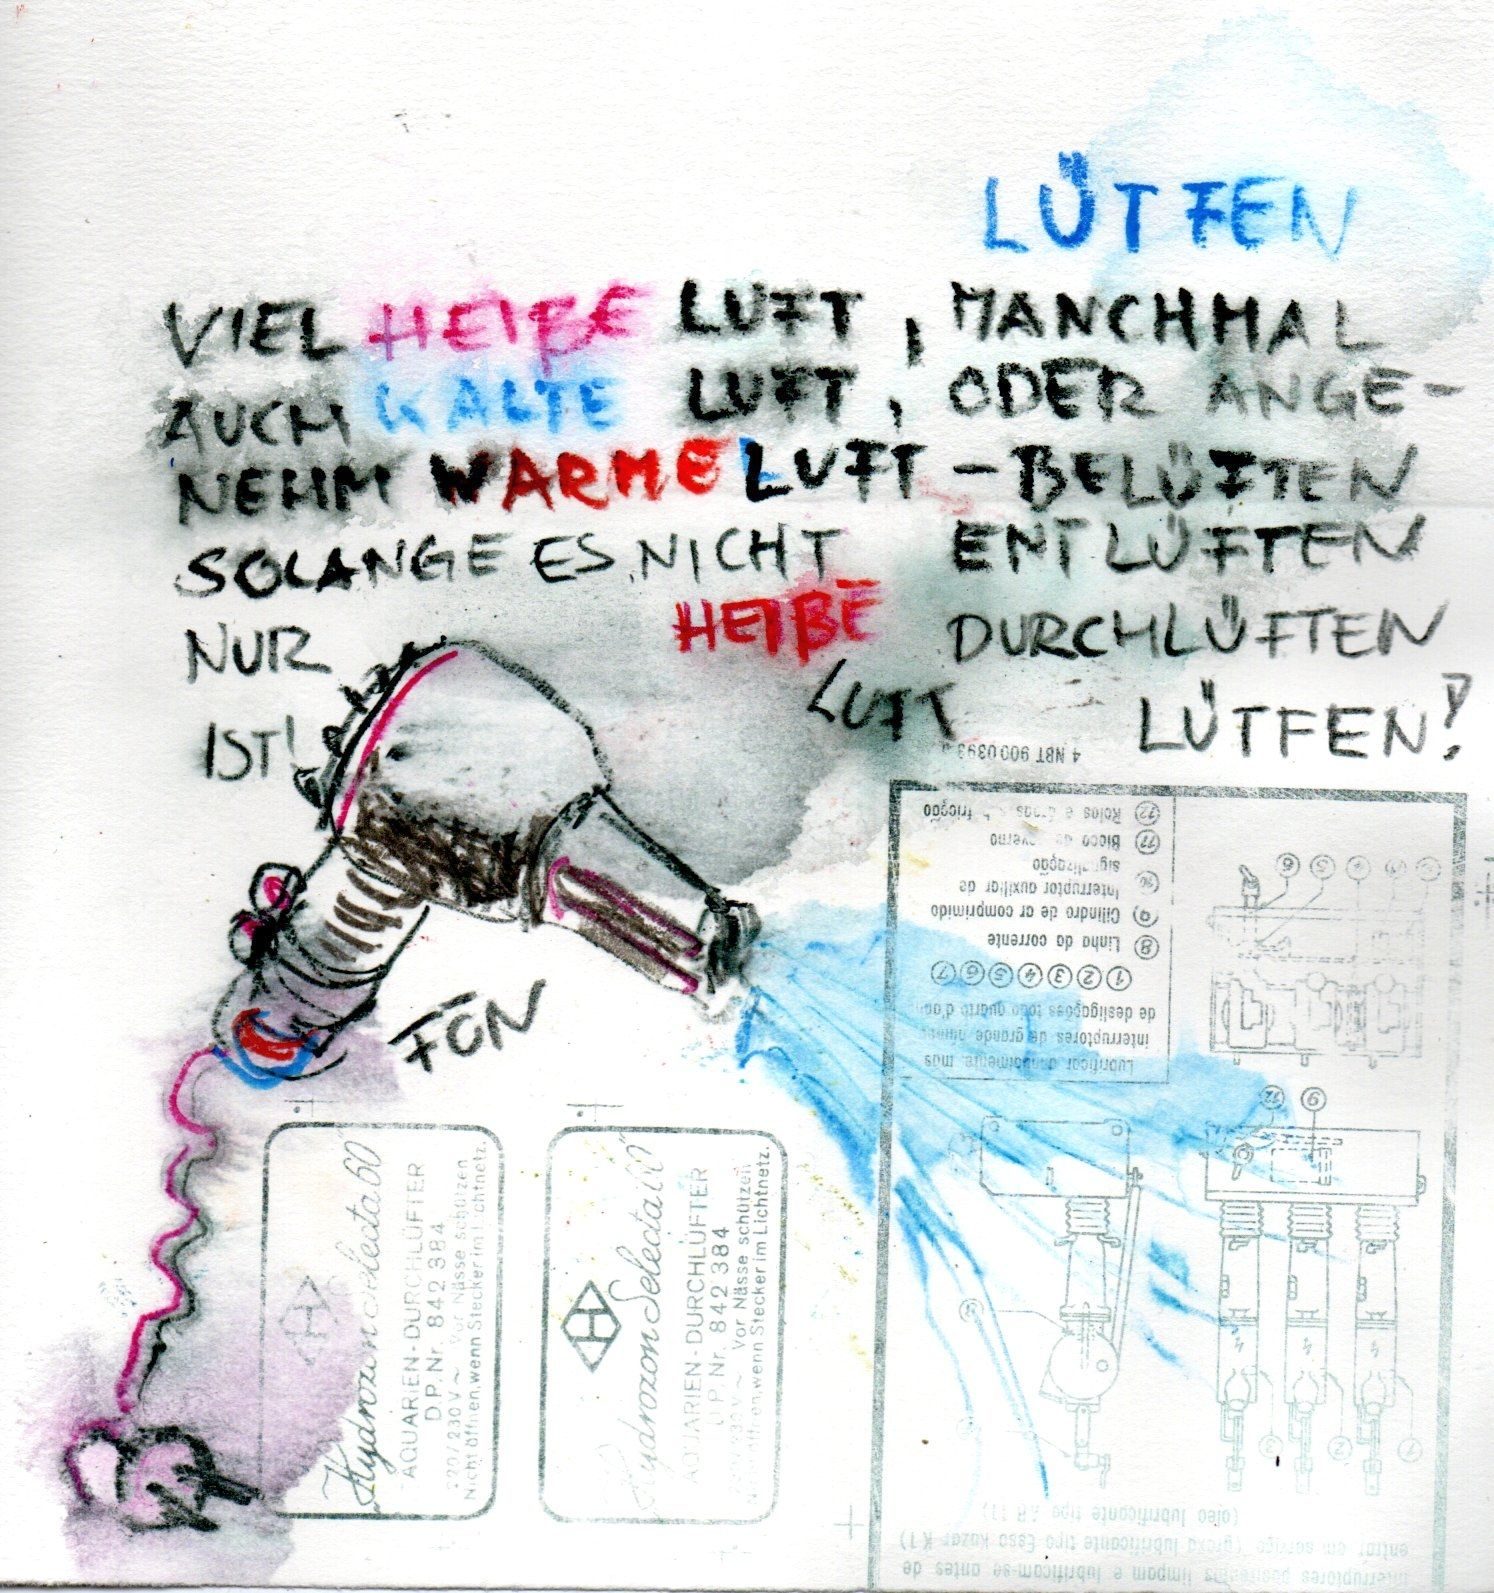 LÜTFEN
VIEL HEIßE LUFT, MANCHMAL
AUCH KALTE LUFT, ODER ANGE-
NEHM WARME LUFT - BELÜFTEN
SOLANGE ES NICHT ENTLÜFTEN
NUR HEIßE DURCHLÜFTEN
IST! LUFT LÜTFEN!
FÖN
4 NBT 900 0393
Lubrificar anualmente mas
interruptores de grande
de desligações todo quarto
1 2 3 4 5 6 7
8 Linha da corrente
9 Cilindro de ar comprimido
Interruptor auxiliar de
signalização
11 Bloco de
12 Rolos e fricção
9
8
3
2
1
interruptores lubrificam-se antes de
entrar em serviço (graxa lubrificante tipo Esso
(oleo lubrificante tipo
Hydrozon Selecta 60
AQUARIEN-DURCHLÜFTER
D.P.Nr. 842 384
220/230V ~ Vor Nässe schützen
Nicht öffnen, wenn Stecker im Lichtnetz.
H
Hydrozon Selecta 60
AQUARIEN-DURCHLÜFTER
P.Nr. 842 384
Vor Nässe schützen
öffnen, wenn Stecker im Lichtnetz.